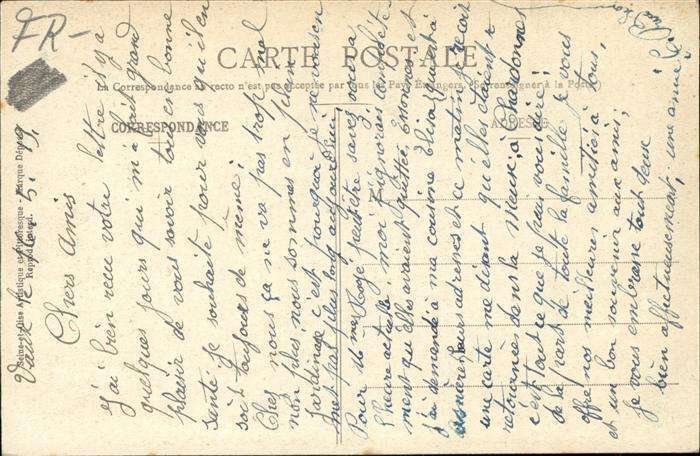 FR-
CARTE POSTALE
La Correspondance au recto n'est pas acceptée par tous les Pays Étrangers. Se renseigner à la Poste
CORRESPONDANCE
ADRESSE
Seine-et-Oise Artistique et Pittoresque - Marque Déposée
Reprod. Interd.
Vaux le 5. 19
Chers Amis
j'ai bien reçu votre lettre il y a
quelques jours qui m'a fait grand
plaisir de vous savoir tous en bonne
santé je souhaite pour vous qu'il en
soit toujours de même;
Chez nous ça ne va pas trop mal
non plus nous sommes en plein
jardinage c'est pourquoi je ne vous en
met pas plus long aujourd'hui
Pour Mme peut être savez vous
l'heure actuelle; moi j'ignorais complète
ment qu'elles avaient quittée, Émines et
j'ai demandé à ma cousine Elisa, quant à
Asnière, leurs adresses et ce matin je reçois
une carte me disant qu'elles étaient
retournées dans la Meuse, à Chardonnes
c'est tout ce que je puis vous dire;
de la part de toute la famille je vous
offre nos meilleures amitiés à tous,
et un bon souvenir aux amis;
je vous embrasse tout deux
bien affectueusement, une amie